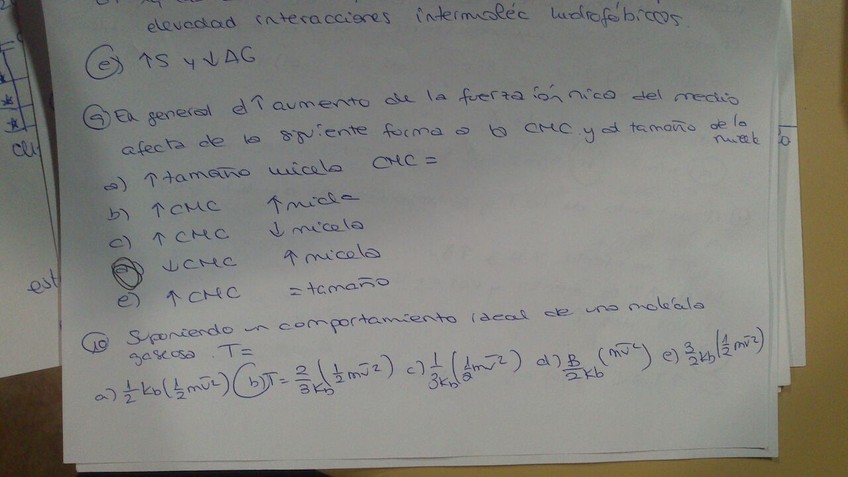 elevedad interacciones intermoléc hidrofóbicos.
e) ↑S y ↓ΔG
9) En general el ↑ aumento de la fuerza iónica del medio
afecta de la siguiente forma a la CMC y al tamaño de la
a) ↑ tamaño micela CMC =
b) ↑ CMC ↑ micela
c) ↑ CMC ↓ micela
d) ↓ CMC ↑ micela
e) ↑ CMC = tamaño
10) Suponiendo un comportamiento ideal de una molécula
gaseosa. T=
a) 1/2 kb (1/2 mv̄²) b) T = 2/3kb (1/2 mv̄²) c) 1/3kb (1/2 mv̄²) d) /2kb (mv̄²) e) 3/2 kb (1/2 mv̄²)
est